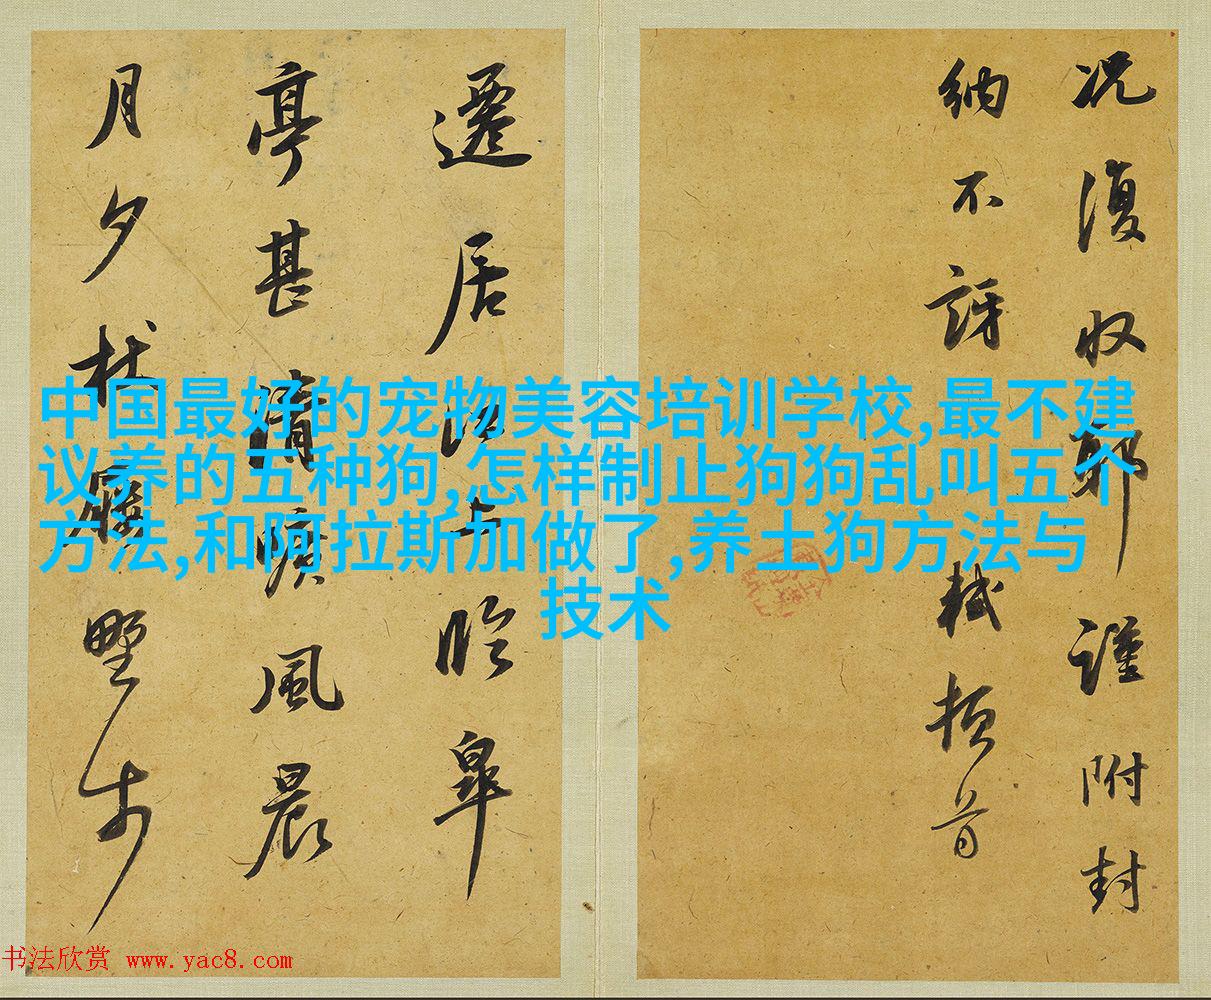 况復收耶謹附封
納不訝軾頓首
遷居江上臨皐
亭甚清曠風晨
月夕杖屨野步
中国最好的宠物美容培训学校,最不建
议养的五种狗,怎样制止狗狗乱叫五个
方法,和阿拉斯加做了,养土狗方法与
技术
书法欣赏 www.yac8.com